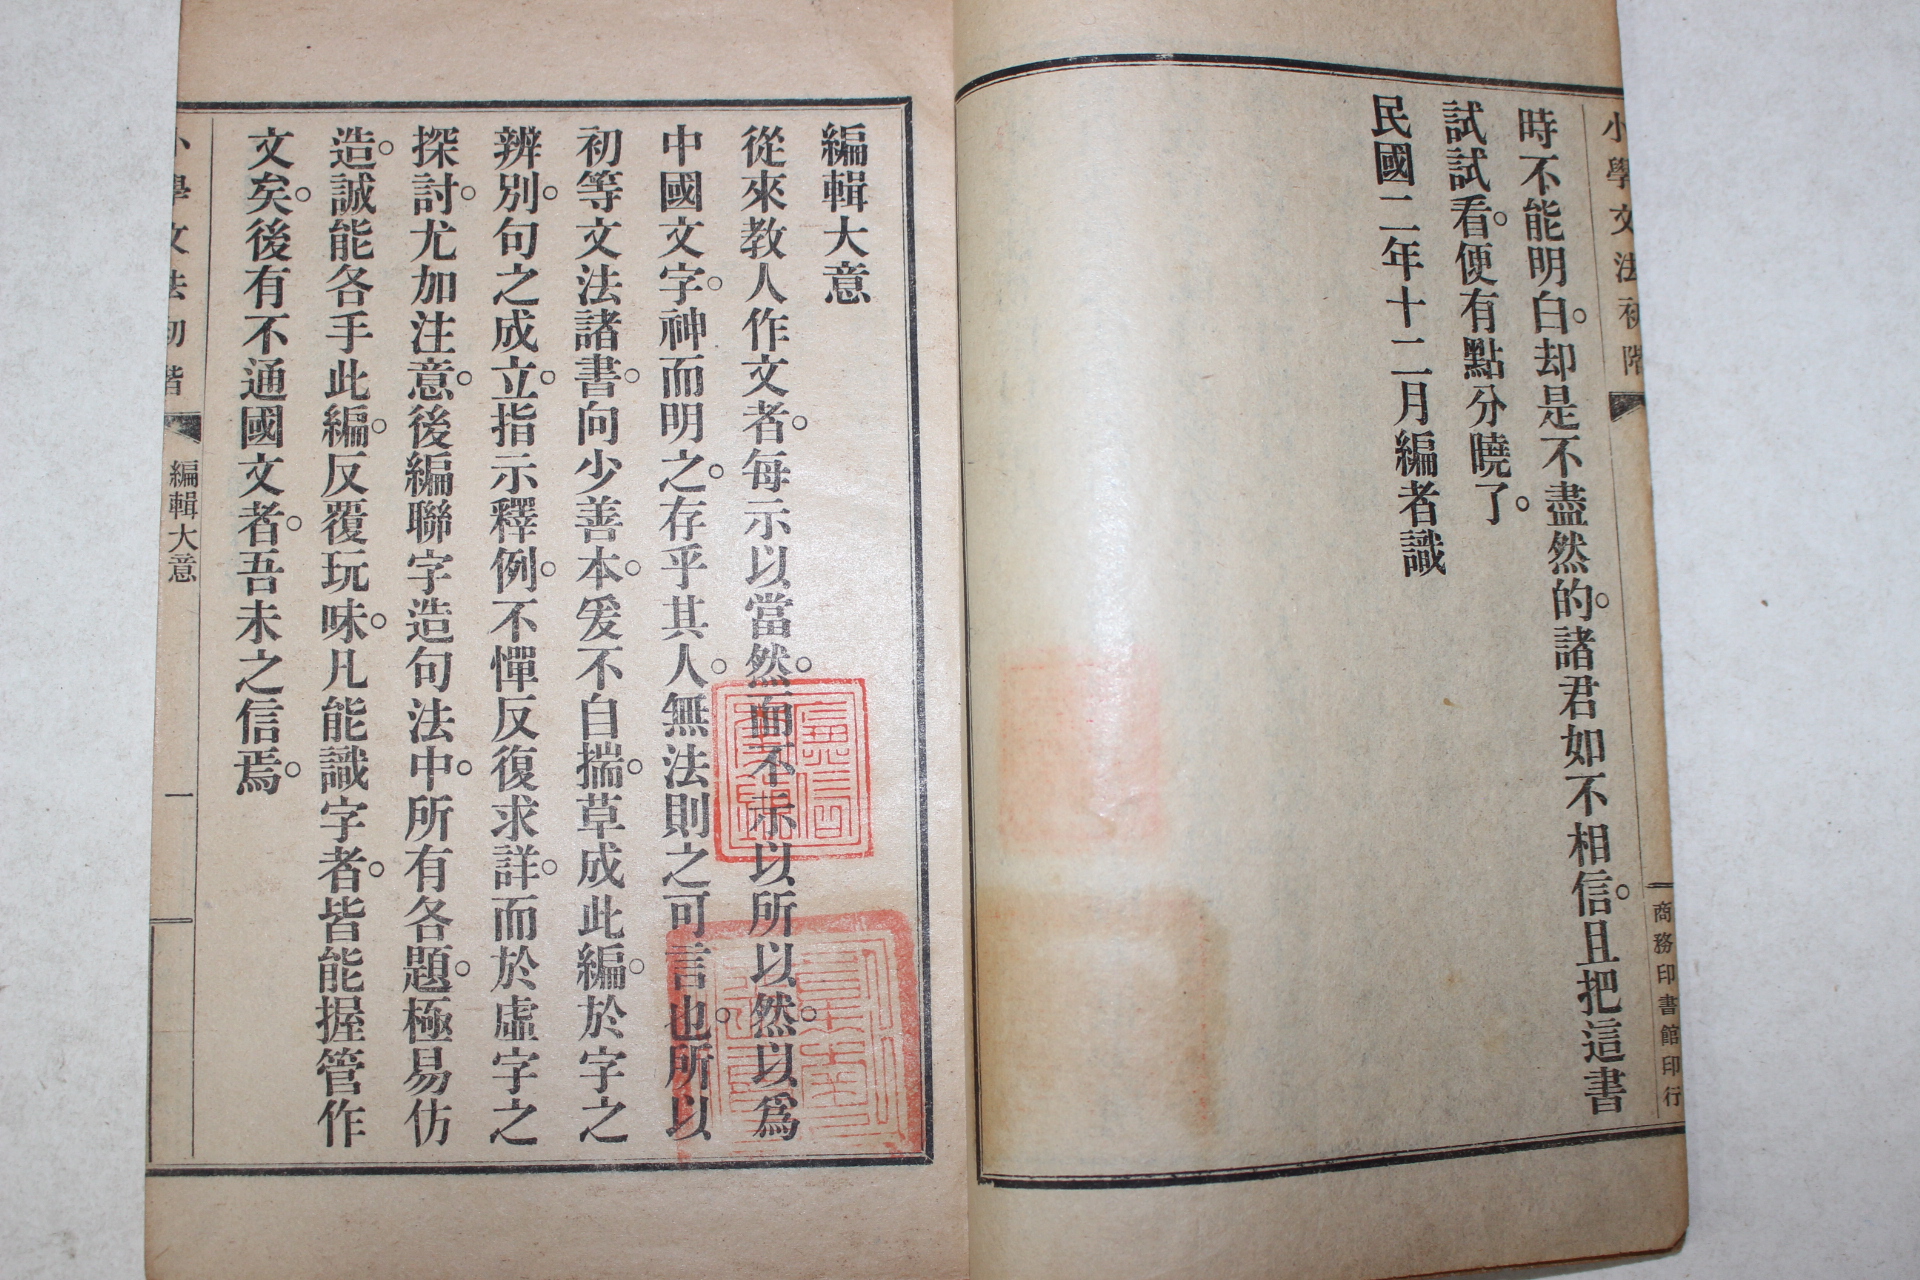 小學文法初階
時不能明白。却是不盡然的。諸君如不相信。且把這書
試試看。便有點分曉了。
民國二年十二月編者識
商務印書館印行
編輯大意
從來教人作文者。每示以當然。而不示以所以然。以爲
中國文字。神而明之。存乎其人。無法則之可言也。所以
初等文法諸書。向少善本。爰不自揣。草成此編。於字之
辨別。句之成立。指示釋例。不憚反復求詳。而於虛字之
探討。尤加注意。後編聯字造句法中。所有各題。極易仿
造。誠能各手此編。反覆玩味。凡能識字者。皆能握管作
文矣。後有不通國文者。吾未之信焉。
小學文法初階
編輯大意
一